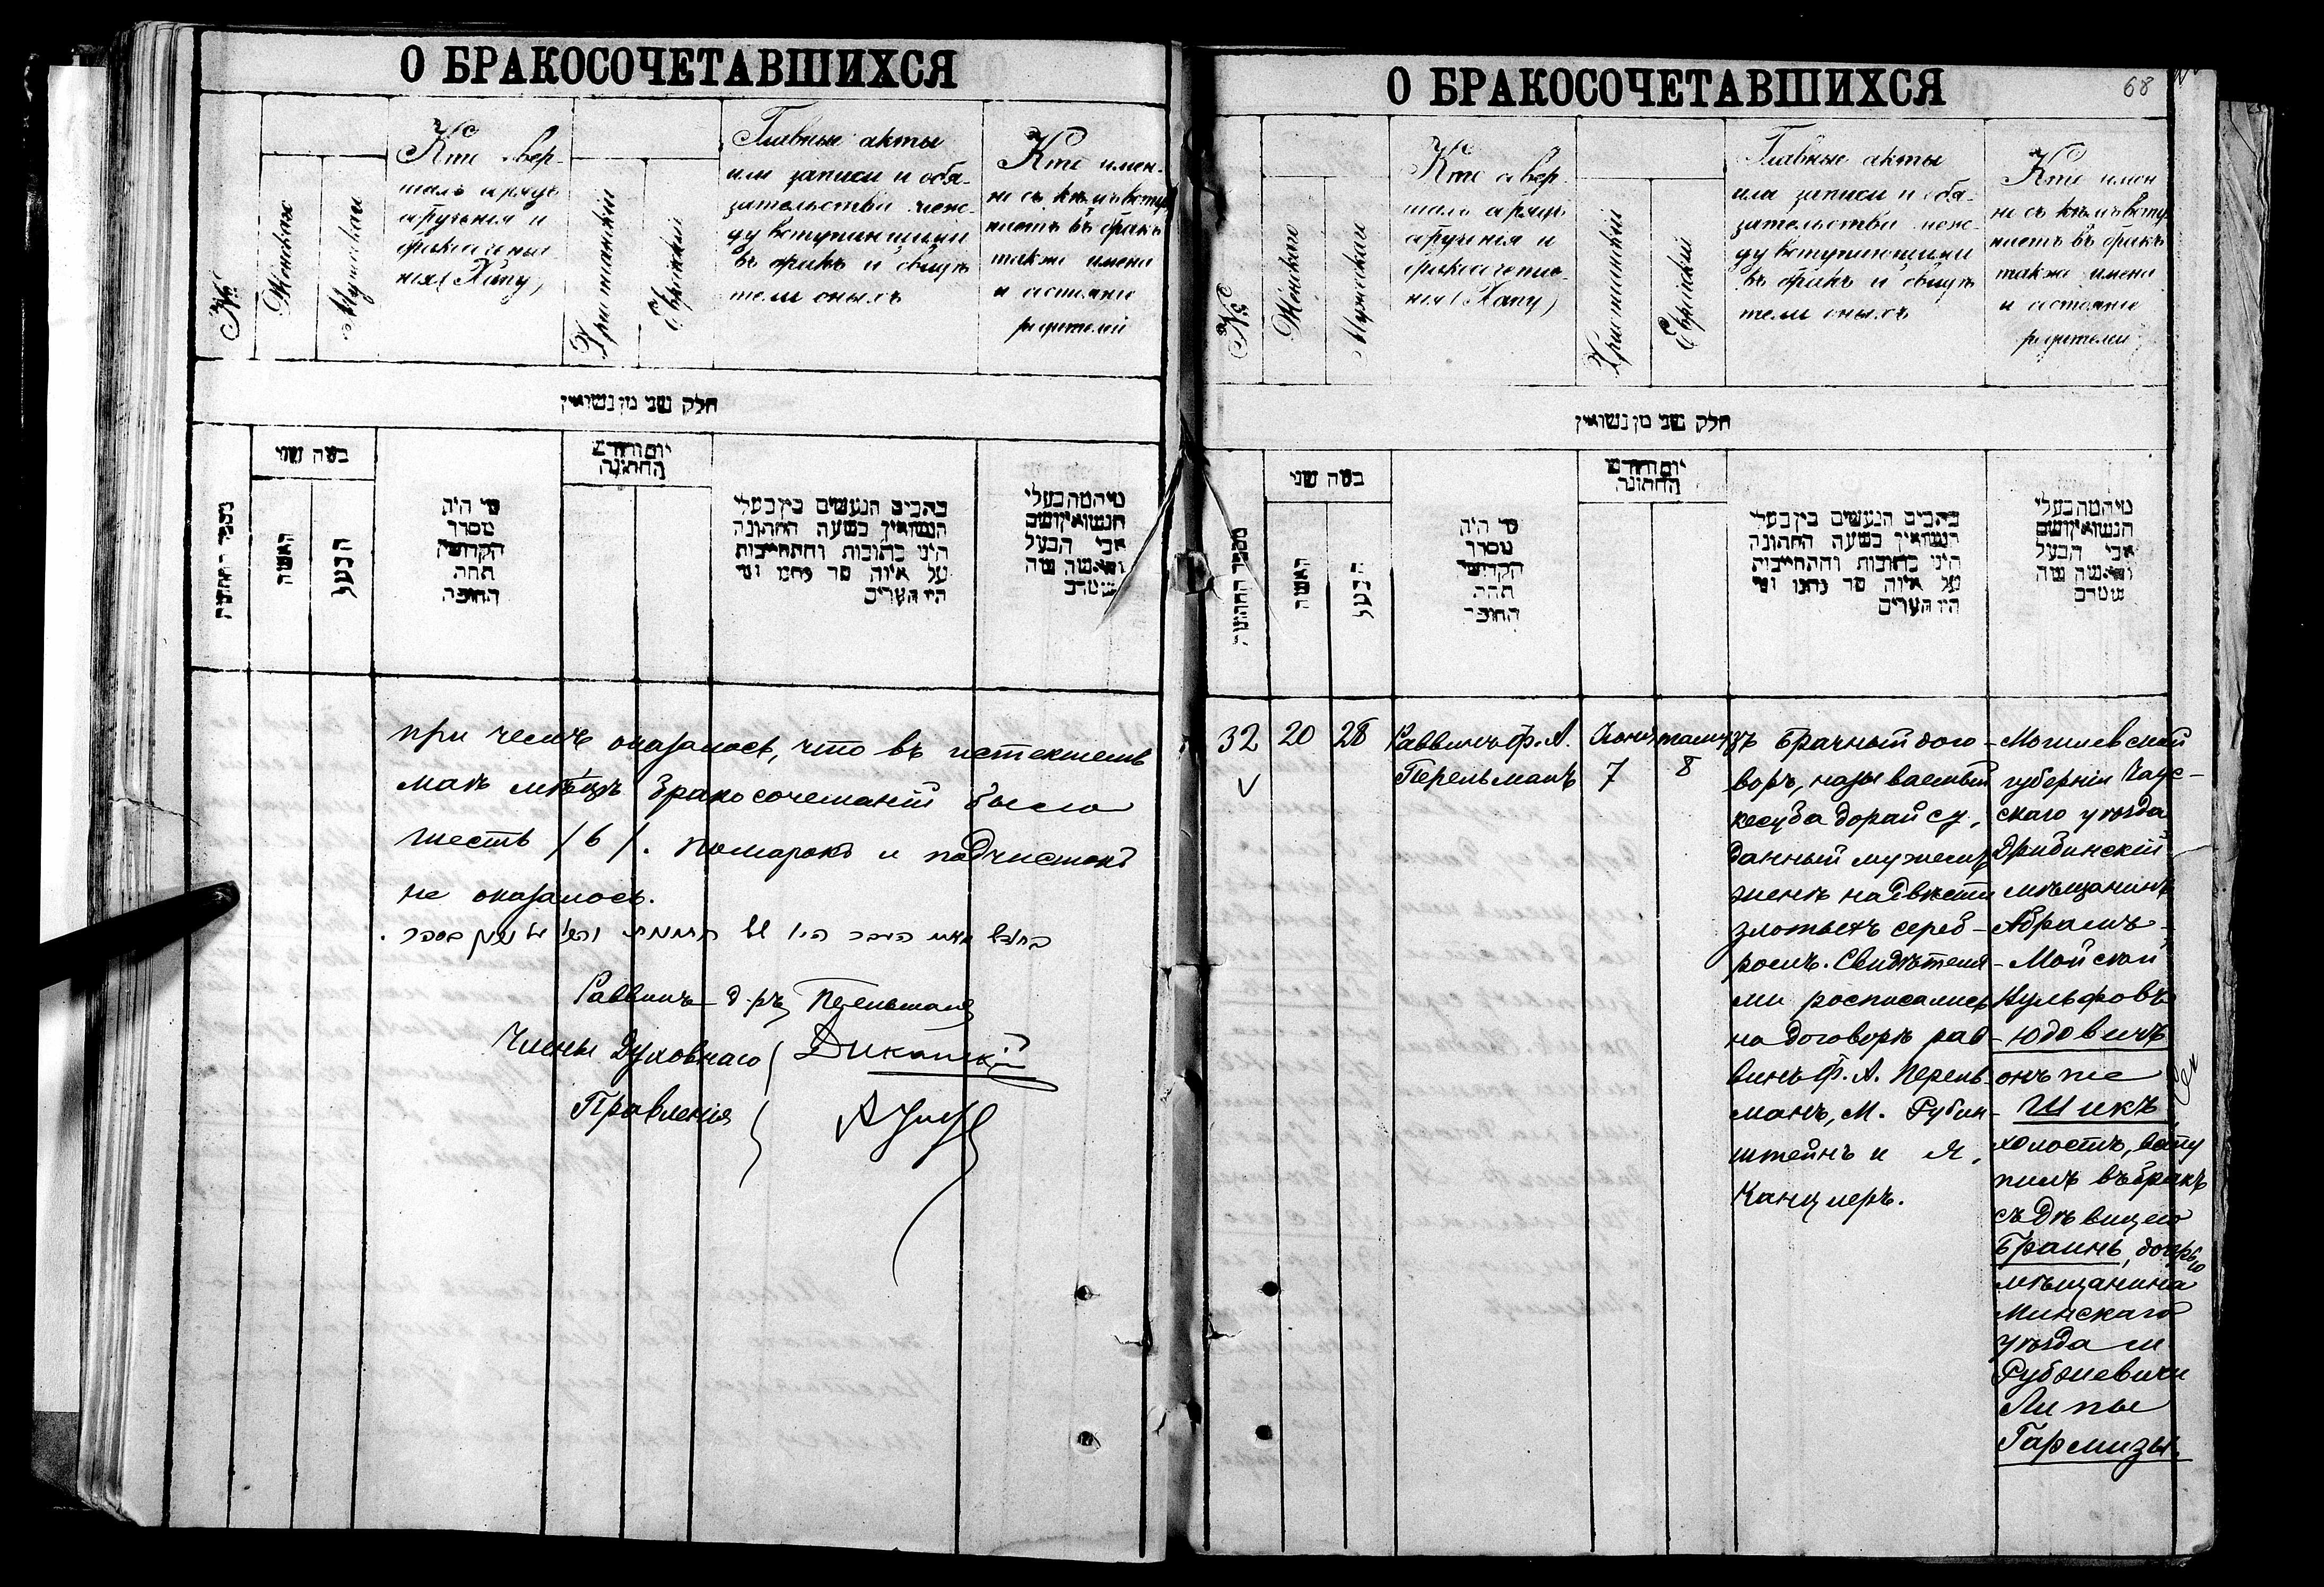 О БРАКОСОЧЕТАВШИХСЯ
№
Женская
Мужская
Кто совер-
шалъ обрядъ
обрученія и
бракосочета-
нія (Хупу)
Христіанскій
Еврейскій
Главные акты
или записи и обя-
зательства меж-
ду вступившими
въ бракъ и свидѣ
тели оныхъ
Кто имен-
но съ кѣмъ всту
паетъ въ бракъ
также имена
и состояніе
родителей
חלק שני מן נשואין
מספר החתונה
כמה שני
האשה
הבעל
מי היה
מסדר
הקדושין
תחת
החופה
יום וחדש
החתונה
כתבים הנעשים בין בעלי
הנשואין בשעה החתונה
היינו כתובות והתחייבות
על איזה סך נתנו ומי
היו העדים
מיהמה בעלי
הנשואין ושם
אבי הבעל
והאשה
при чемъ оказалось, что въ истекшемъ
маѣ мѣсяцѣ бракосочетаній было
шесть /6/. помарокъ и подчистокъ
не оказалось.
Раввинъ д-ръ Перельманъ
Члены Духовнаго
Правленія
О БРАКОСОЧЕТАВШИХСЯ
68
№
Женская
Мужская
Кто совер
шалъ обрядъ
обрученія и
бракосочета-
нія (Хупу)
Христіанскій
Еврейскій
Главные акты
или записи и обя-
зательства меж-
ду вступившими
въ бракъ и свидѣ
тели оныхъ
Кто имен
но съ кѣмъ всту
паетъ въ бракъ
также имена
и состояніе
родителей
חלק שני מן נשואין
מספר החתונה
כמה שני
האשה
הבעל
מי היה
מסדר
הקדושין
תחת
החופה
יום וחדש
החתונה
כתבים הנעשים בין בעלי
הנשואין בשעה החתונה
היינו כתובות והתחייבות
על איזה סך נתנו ומי
היו העדים
מיהמה בעלי
הנשואין ושם
אבי הבעל
והאשה
32
20
28
Раввинъ Ф. А.
Перельманъ
Іюня
7
тамузъ
8
Брачный дого-
воръ, называемый
кесуба дорайсу,
данный мужемъ
женѣ на двѣсти
злотыхъ сереб-
ромъ. Свидѣтеля-
ми росписались
на договорѣ рав-
винъ Ф. А. Перель-
манъ, М. Рубин-
штейнъ и Я.
Канцлеръ.
Могилевской
губерніи Чаус-
скаго уѣзда
Дрибинскій
мѣщанинъ
Абрамъ-
Мойсей
Вульфовъ
Юдовичъ
онъ же
Шикъ,
холостъ, всту
пилъ въ бракъ
съ дѣвицею
Браинь, дочерью
мѣщанина
Минскаго
уѣзда м
Рубежевичи
Липы
Гармизы.